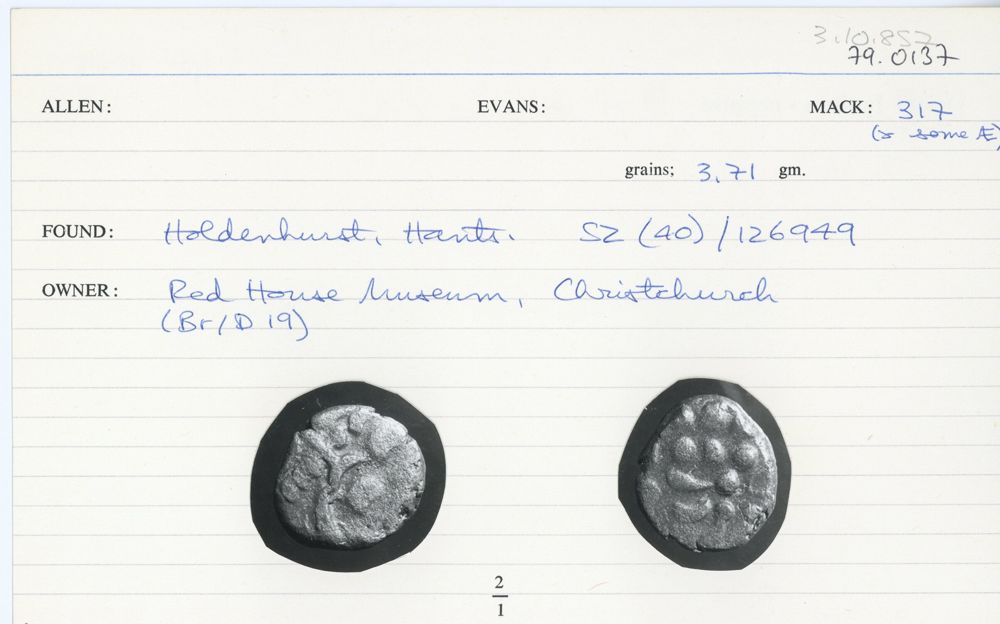 3.10.857
79.0137
ALLEN: EVANS: MACK: 317
(& some Æ)
grains; 3.71 gm.
FOUND: Holdenhurst, Hants. SZ (40) / 126949
OWNER: Red House Museum, Christchurch
(Br/D 19)
2
1